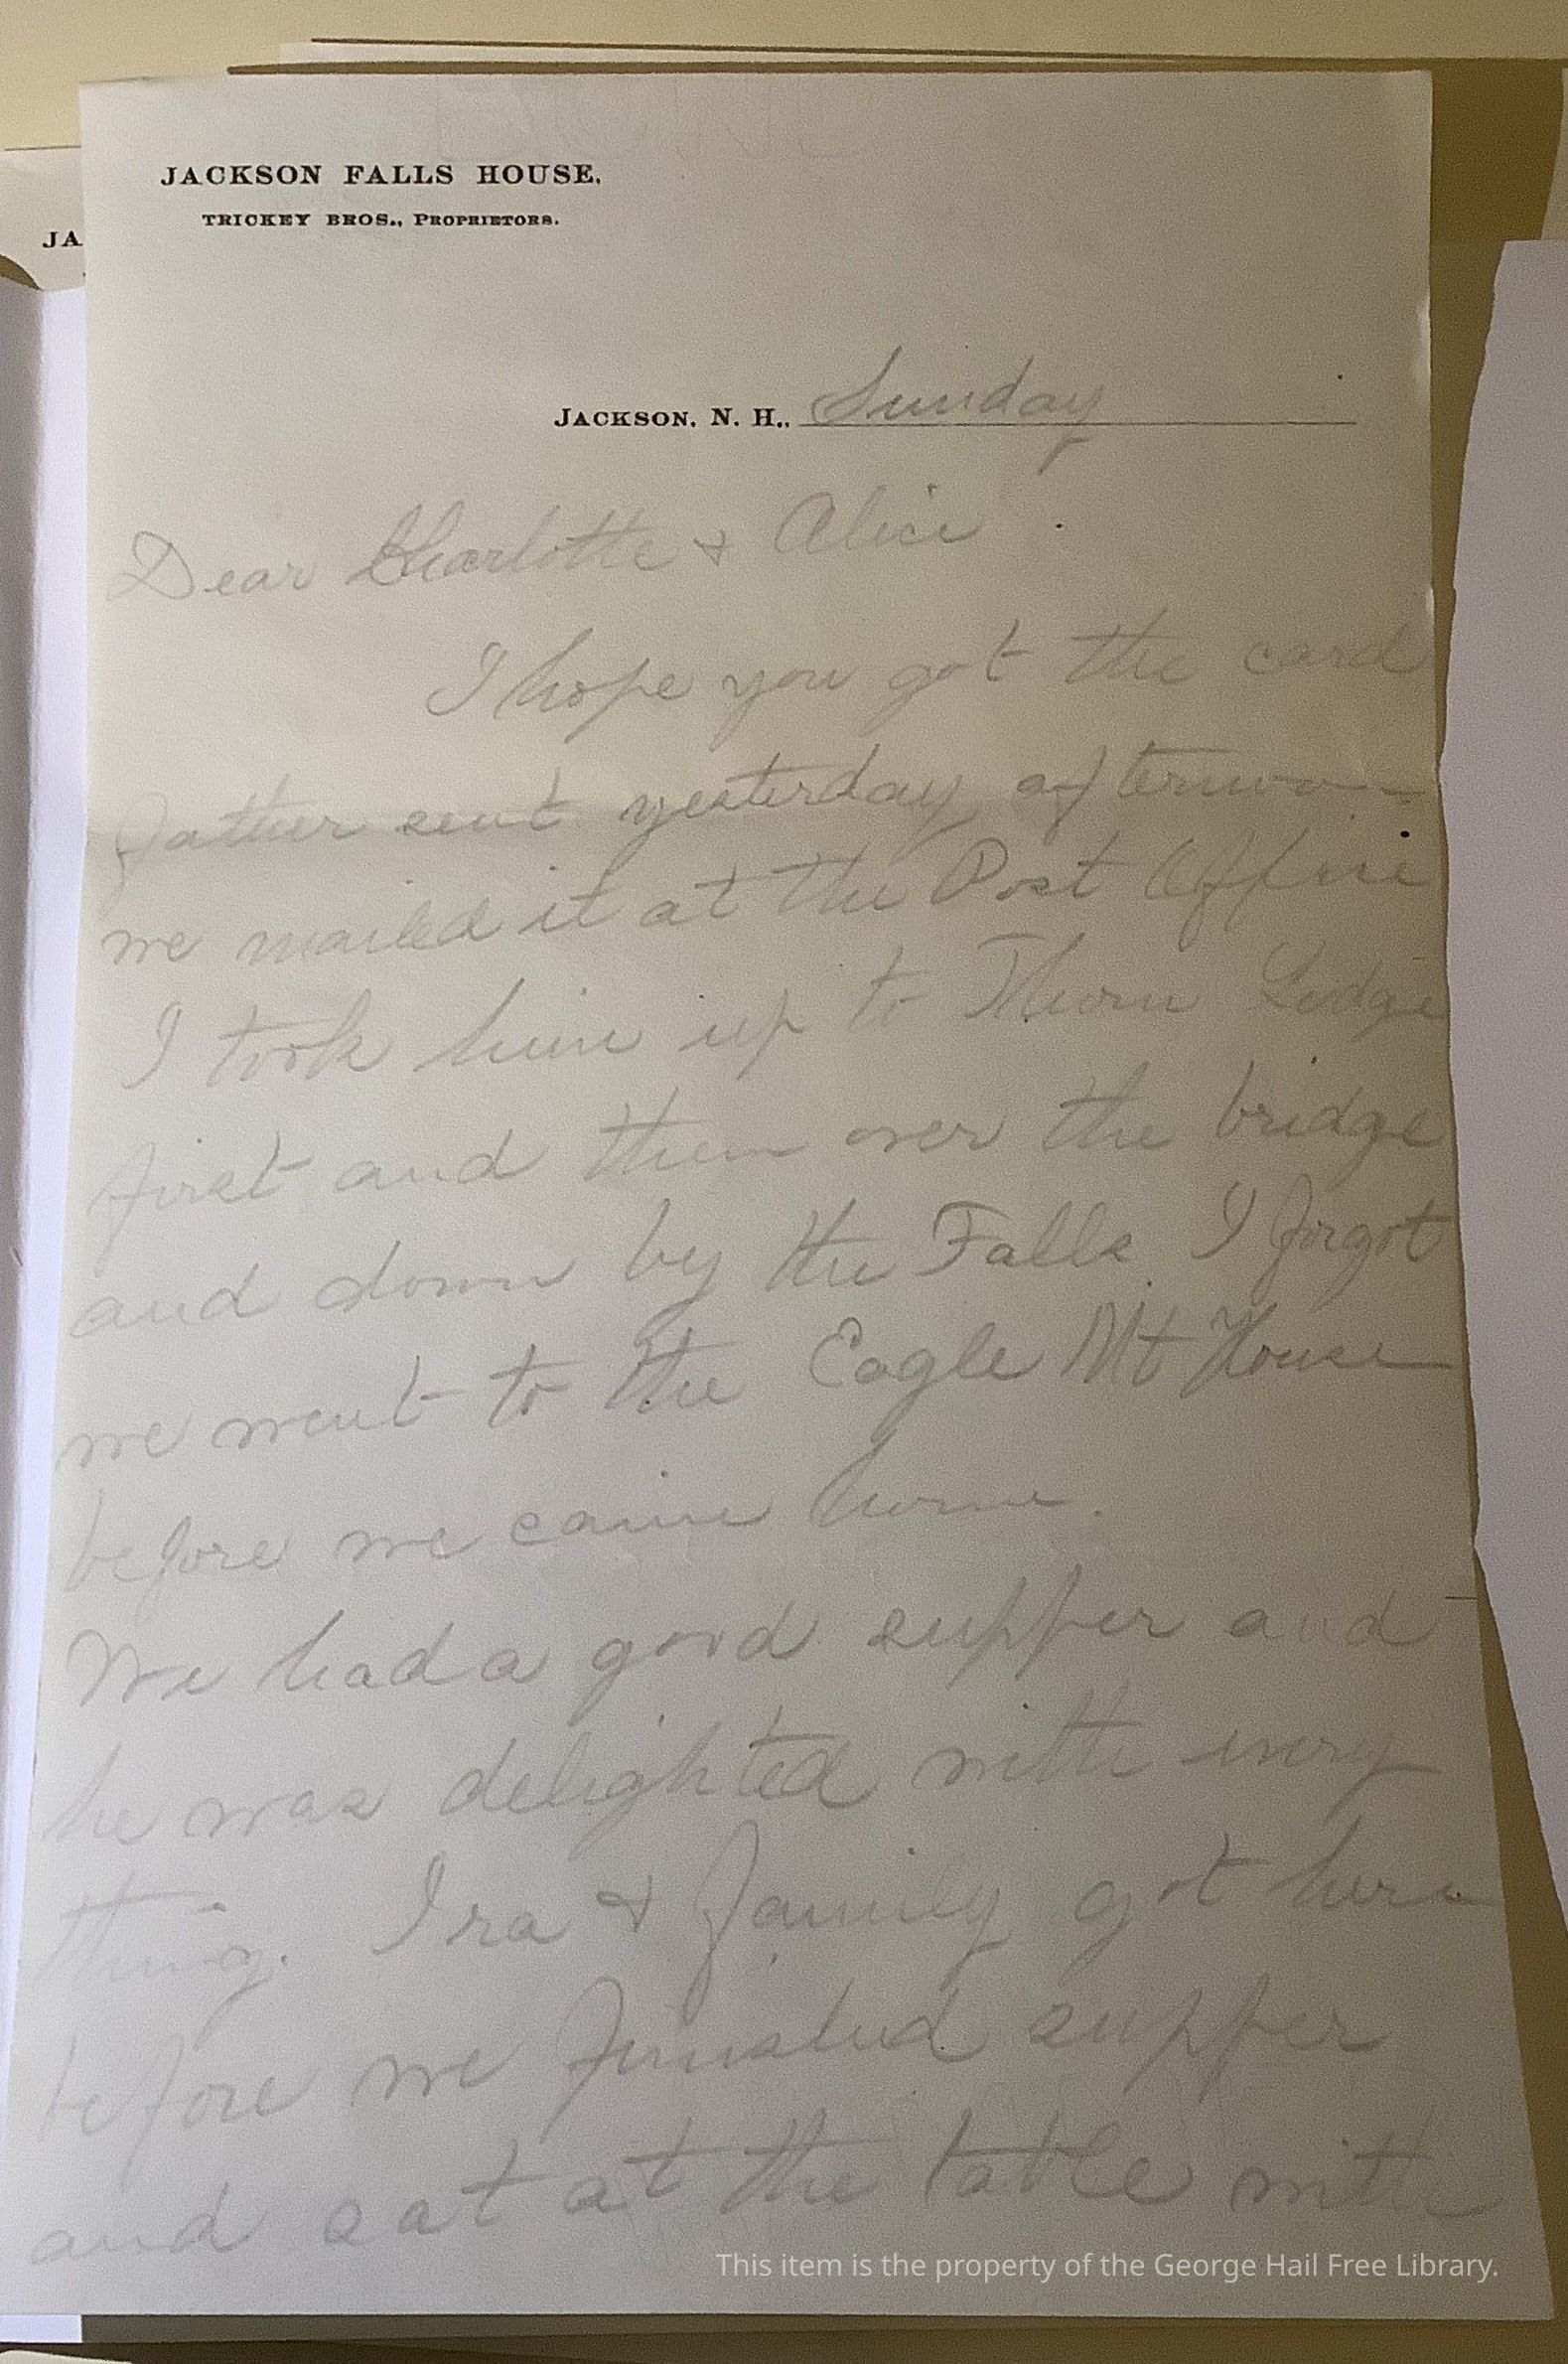 JACKSON FALLS HOUSE.
TRICKEY BROS., PROPRIETORS.
JA
JACKSON, N. H., Sunday
Dear Charlotte & Alice
I hope you got the card
father sent yesterday afternoon
we mailed it at the Post Office
I took him up to Thorn Lodge
first and then over the bridge
and down by the Falls. I forgot
we went to the Eagle Mt House
before we came home.
We had a good supper and
he was delighted with every
thing. Ira & family got here
before we finished supper
and sat at the table with
This item is the property of the George Hail Free Library.